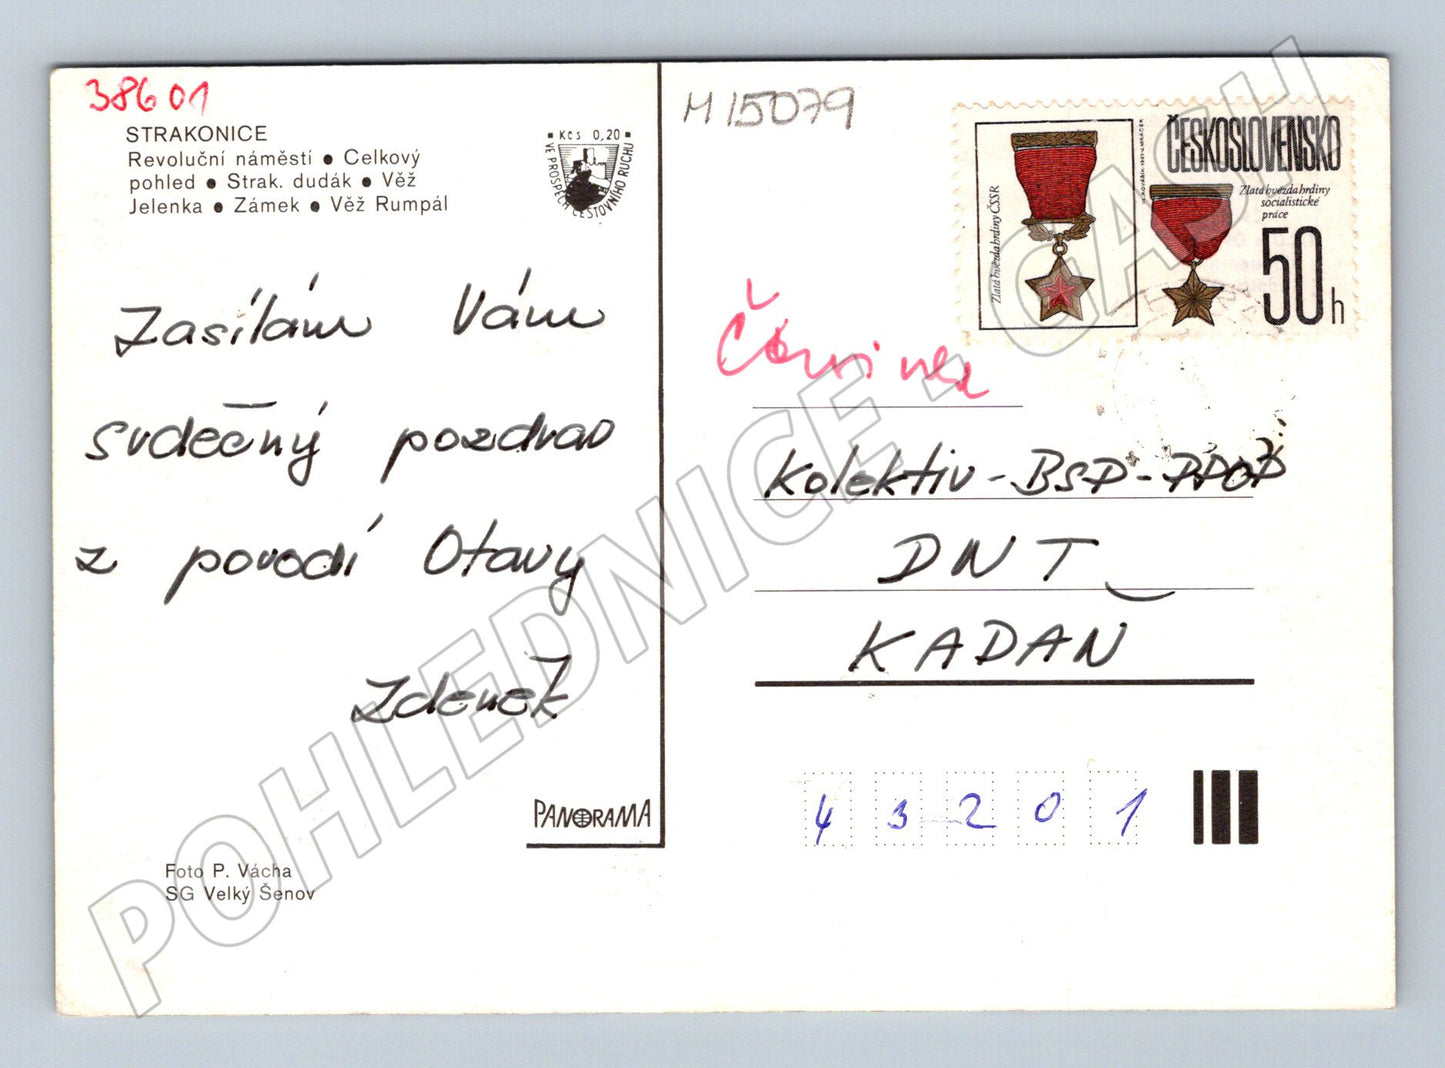 38601
STRAKONICE
Revoluční náměstí ● Celkový
pohled ● Strak. dudák ● Věž
Jelenka ● Zámek ● Věž Rumpál
Kčs 0,20
VE PROSPĚCH CESTOVNÍHO RUCHU
Zasílám Vám
srdečný pozdrav
z povodí Otavy
Zdenek
PANORAMA
Foto P. Vácha
SG Velký Šenov
M 15079
ČESKOSLOVENSKO
Zlatá hvězda hrdiny ČSSR
Zlatá hvězda hrdiny
socialistické
práce
50 h
Kolektiv - BSP -
DNT
KADAŇ
43201
POHLEDNICE - CASH